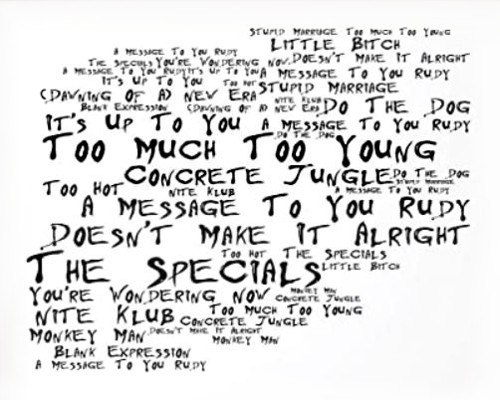 STUPID MARRIAGE TOO MUCH TOO YOUNG
LITTLE BITCH
A MESSAGE TO YOU RUDY
THE SPECIALS YOU'RE WONDERING NOW DOESN'T MAKE IT ALRIGHT
A MESSAGE TO YOU RUDY IT'S UP TO YOU A MESSAGE TO YOU RUDY
IT'S UP TO YOU TOO HOT STUPID MARRIAGE
(DAWNING OF A) NEW ERA NITE KLUB DO THE DOG
BLANK EXPRESSION (DAWNING OF A) NEW ERA
IT'S UP TO YOU A MESSAGE TO YOU RUDY
DO THE DOG
TOO MUCH TOO YOUNG
CONCRETE JUNGLE DO THE DOG
STUPID MARRIAGE
TOO HOT NITE KLUB A MESSAGE TO YOU RUDY
A MESSAGE TO YOU RUDY
DOESN'T MAKE IT ALRIGHT
TOO HOT THE SPECIALS
THE SPECIALS LITTLE BITCH
YOU'RE WONDERING NOW MONKEY MAN
CONCRETE JUNGLE
NITE KLUB TOO MUCH TOO YOUNG
CONCRETE JUNGLE
MONKEY MAN DOESN'T MAKE IT ALRIGHT
MONKEY MAN
BLANK EXPRESSION
A MESSAGE TO YOU RUDY